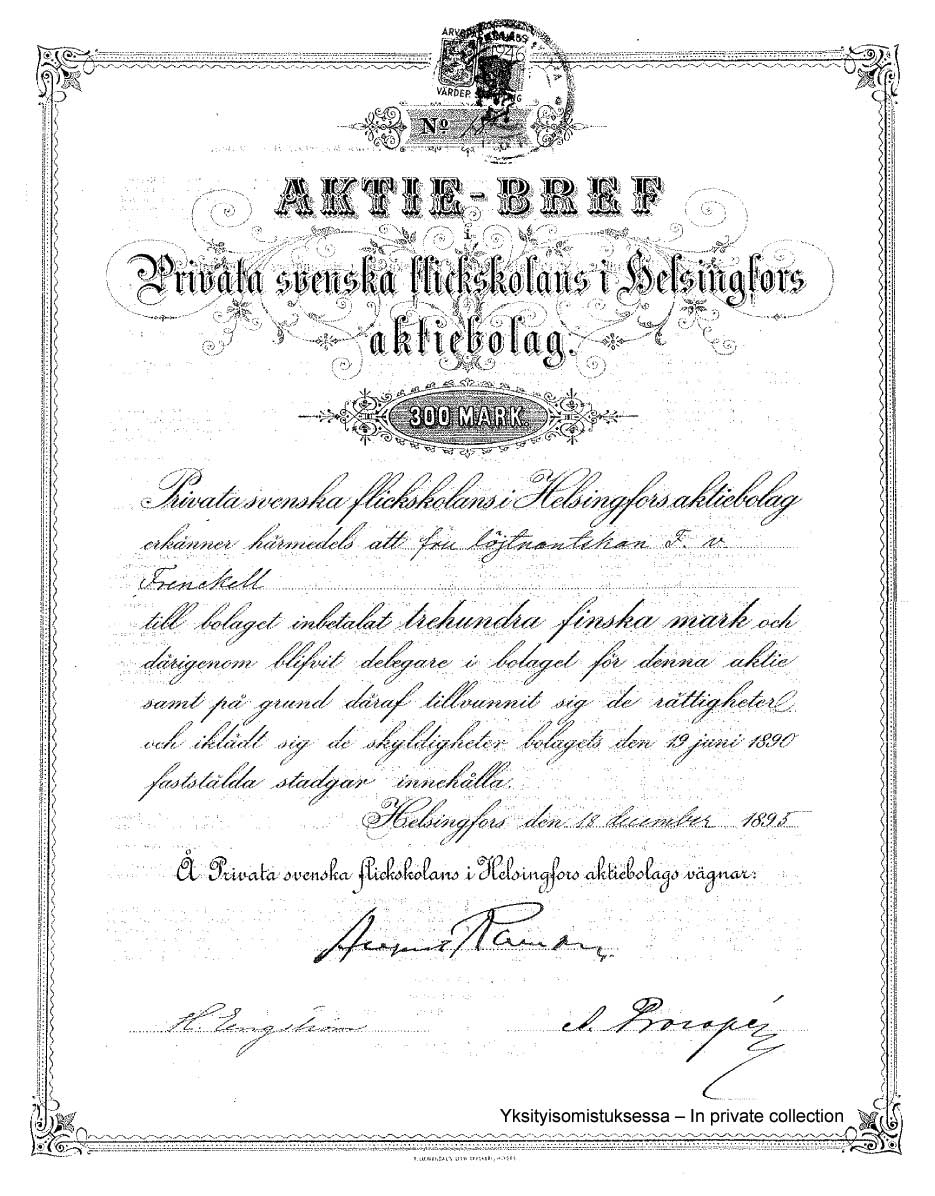 1946
VÄRDEP.
No
AKTIE-BREF
i
Privata svenska flickskolans i Helsingfors
aktiebolag.
300 MARK.
Privata svenska flickskolans i Helsingfors aktiebolag
erkänner härmedels att fru löjtnantskan F. v.
Frenckell
till bolaget inbetalat trehundra finska mark och
därigenom blifvit delegare i bolaget för denna aktie
samt på grund däraf tillvunnit sig de rättigheter
och iklädt sig de skyldigheter bolagets den 19 juni 1890
faststälda stadgar innehålla.
Helsingfors den 18 december 1895
Å Privata svenska flickskolans i Helsingfors aktiebolags vägnar:
August Ramsay
H. Engström
A. Procopé
Yksityisomistuksessa – In private collection